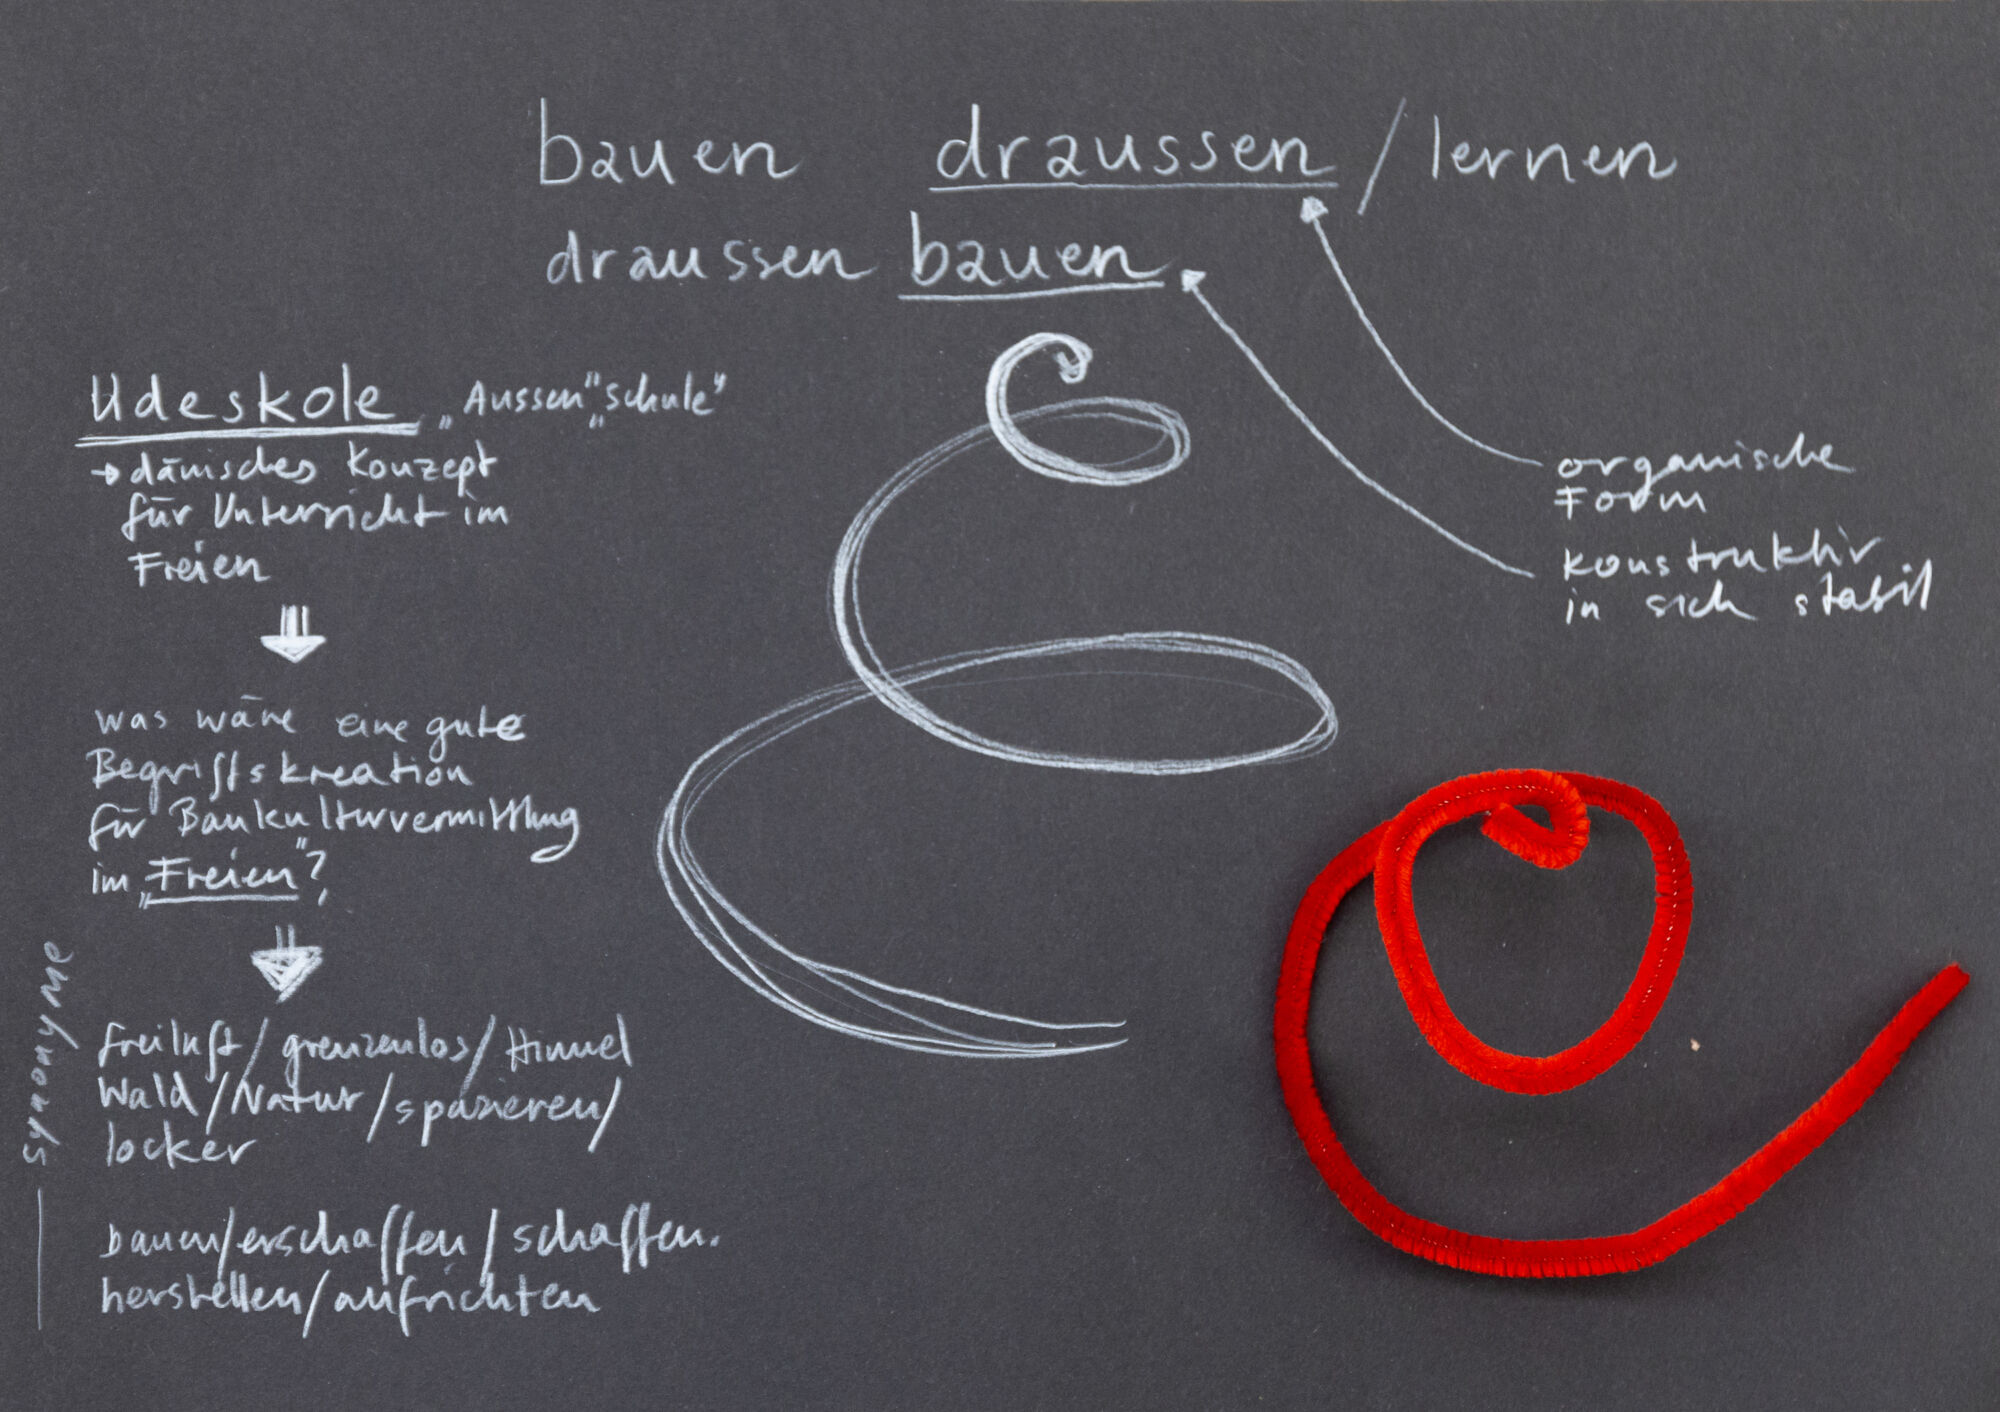 bauen draussen / lernen
draussen bauen
Udeskole „Aussen"„schule"
→ dänisches Konzept
für Unterricht im
Freien
was wäre eine gute
Begriffskreation
für Baukulturvermittlung
im „Freien"?
synonyme
freiluft / grenzenlos / Himmel
Wald / Natur / spazieren /
locker
bauen/erschaffen / schaffen.
herstellen / aufrichten
organische
Form
konstruktiv
in sich stabil